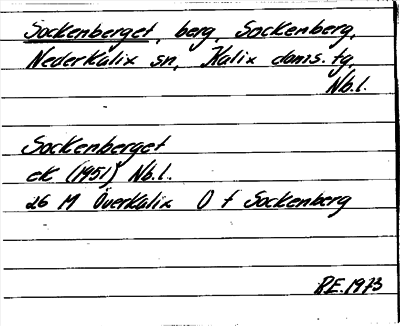 Sockenberget, berg, Sockenberg,
Nederkalix sn, Kalix doms. tg,
Nb.l.
Sockenberget
ek (1951) Nb.l.
26 M Överkalix O f Sockenberg
P.E. 1973